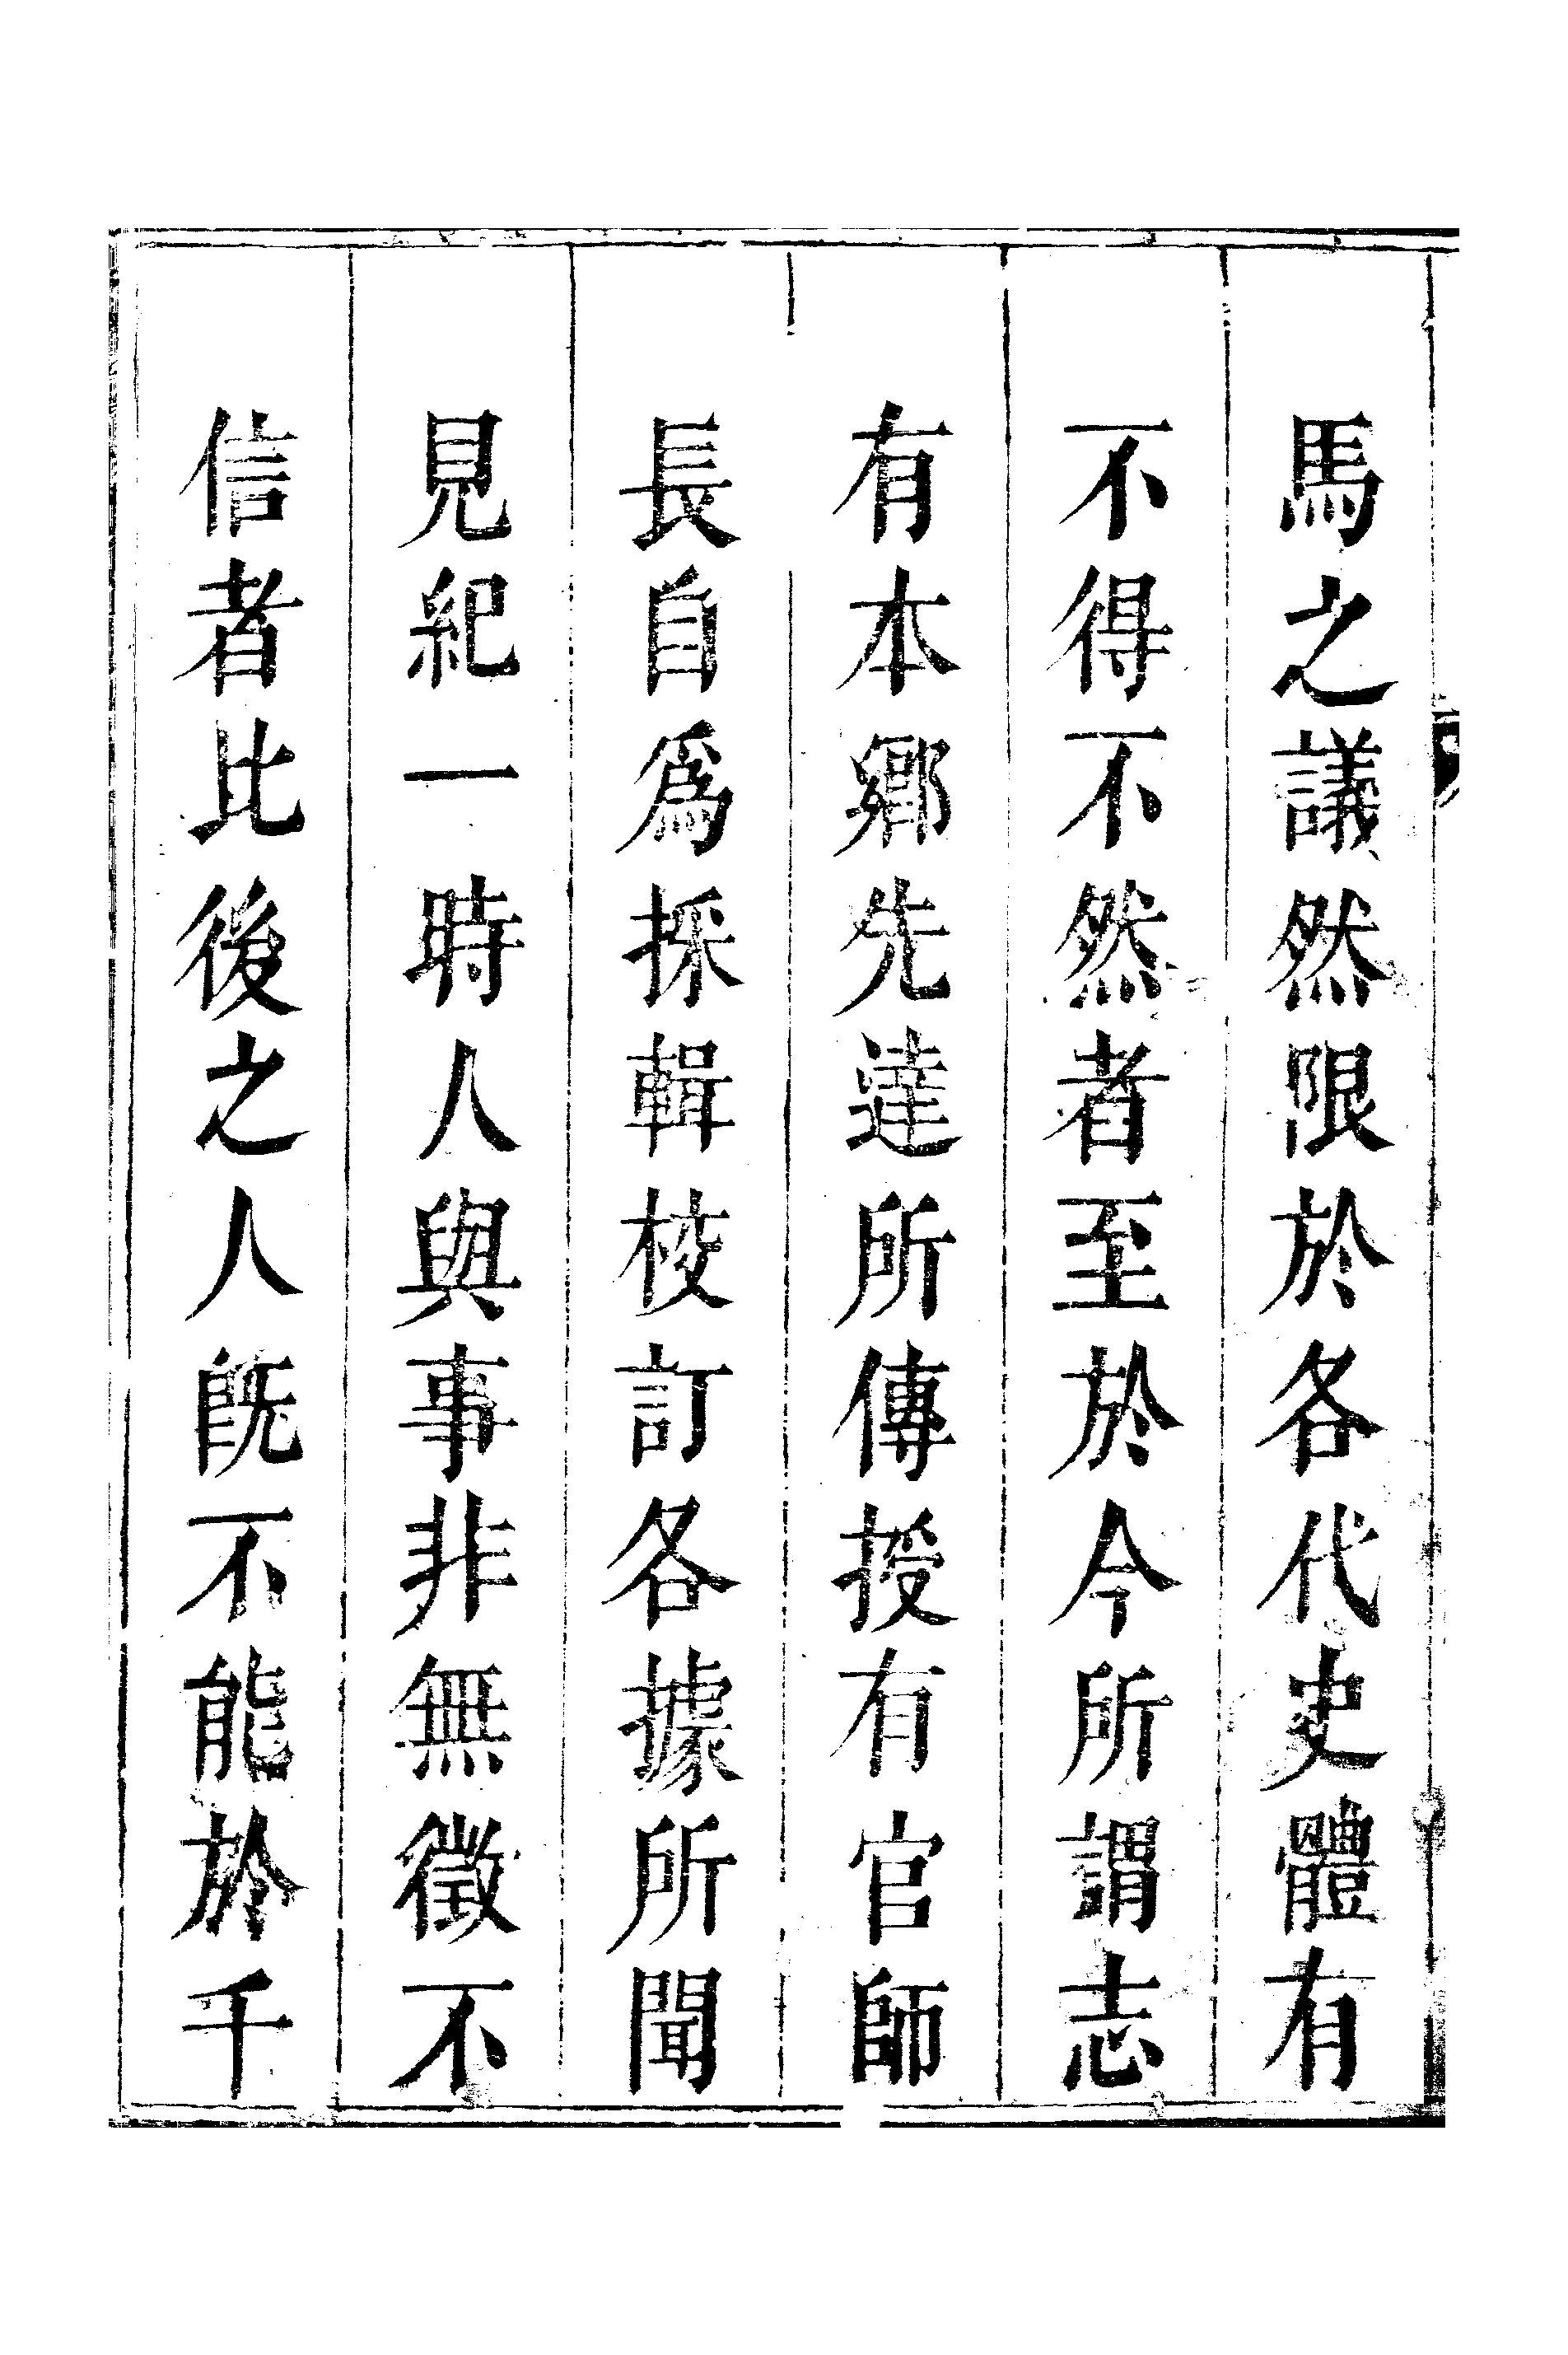 馬之議然限於各代史體有
不得不然者至於今所謂志
有本鄉先達所傳授有官師
長自爲採輯校訂各據所聞
見紀一時人與事非無徵不
信者比後之人旣不能於千